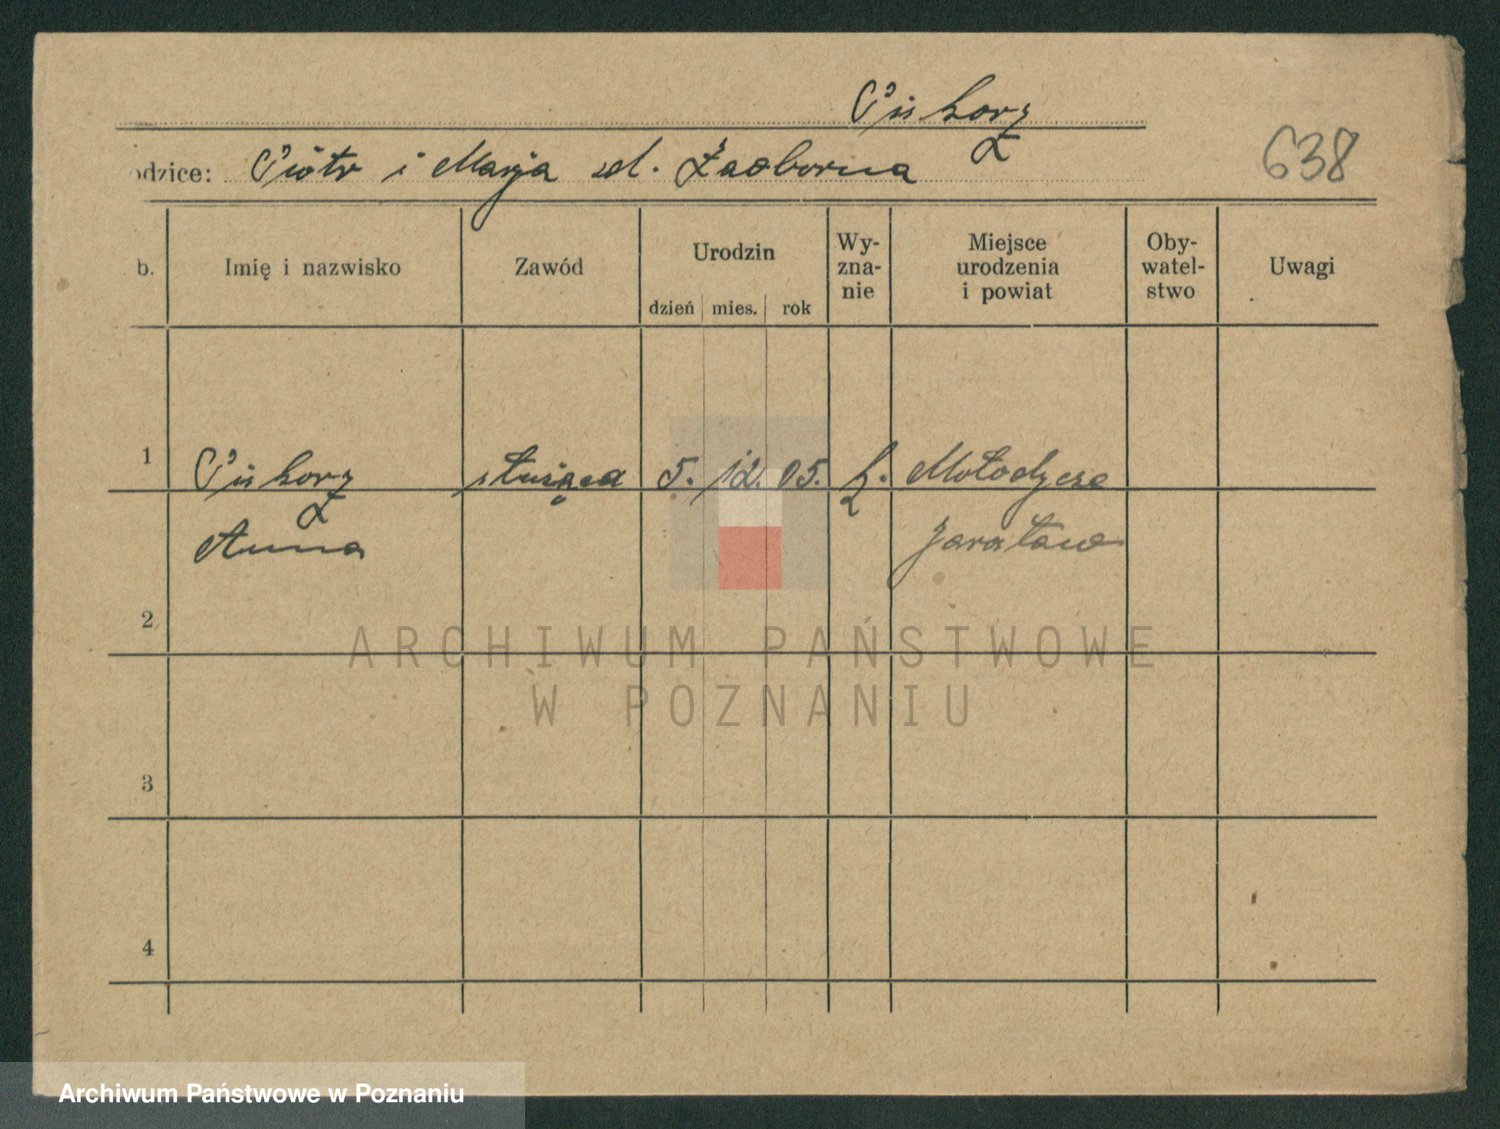 Piskorz
638
odzice: Piotr i Marja zd. Zaoborna
b. Imię i nazwisko Zawód Urodzin dzień mies. rok Wy-zna-nie Miejsce urodzenia i powiat Oby-watel-stwo Uwagi
1 Piskorz służąca 5. 12. 05. k. Mołodycz
Anna Jarosław
2
ARCHIWUM PAŃSTWOWE
W POZNANIU
3
4
Archiwum Państwowe w Poznaniu